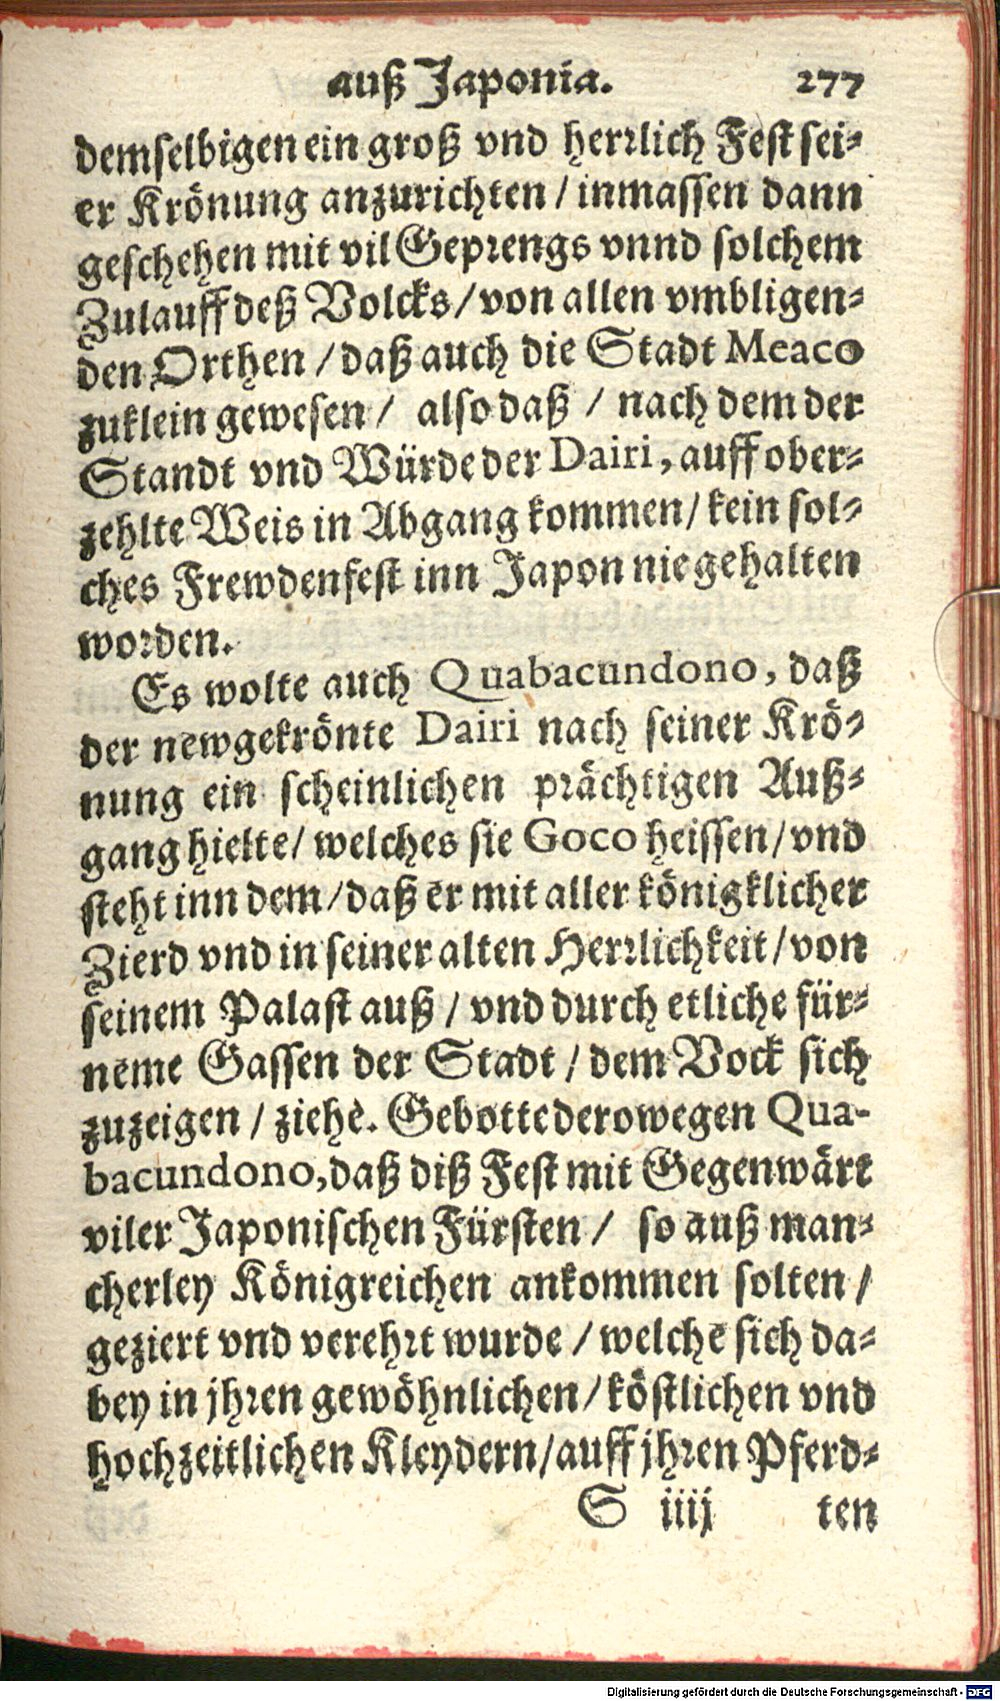 auß Japonia. 277
demselbigen ein groß vnd herrlich Fest sei-
er Krönung anzurichten / inmassen dann
geschehen mit vil Geprengs vnnd solchem
Zulauff deß Volcks / von allen vmbligen-
den Orthen / daß auch die Stadt Meaco
zuklein gewesen / also daß / nach dem der
Standt vnd Würde der Dairi, auff ober-
zehlte Weis in Abgang kommen / kein sol-
ches Frewdenfest inn Japon nie gehalten
worden.
Es wolte auch Quabacundono, daß
der newgekrönte Dairi nach seiner Krö-
nung ein scheinlichen prächtigen Auß-
gang hielte / welches sie Goco heissen / vnd
steht inn dem / daß er mit aller königklicher
Zierd vnd in seiner alten Herrlichkeit / von
seinem Palast auß / vnd durch etliche für-
neme Gassen der Stadt / dem Vock sich
zuzeigen / ziehe. Gebotte derowegen Qua-
bacundono, daß diß Fest mit Gegenwärt
viler Japonischen Fürsten / so auß man-
cherley Königreichen ankommen solten /
geziert vnd verehrt wurde / welche sich da-
bey in jhren gewöhnlichen / köstlichen vnd
hochzeitlichen Kleydern / auff jhren Pferd-
S iiij ten
Digitalisierung gefördert durch die Deutsche Forschungsgemeinschaft - DFG